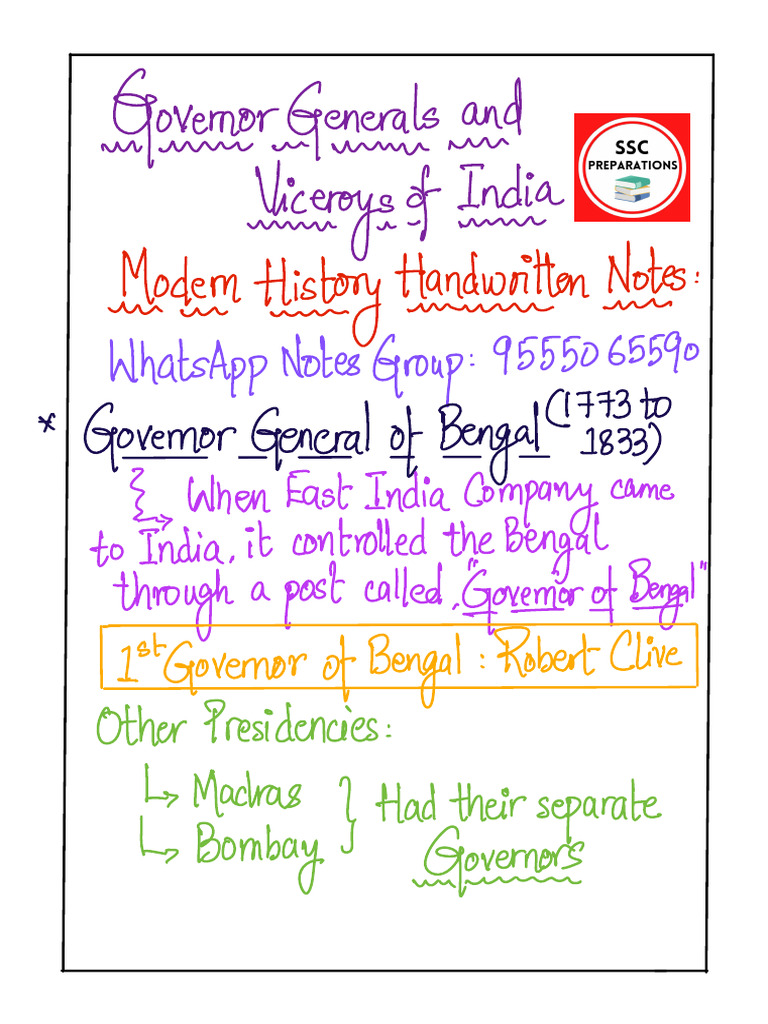 Governor Generals and
Viceroys of India
SSC
PREPARATIONS
Modern History Handwritten Notes:
WhatsApp Notes Group: 95550 65590
* Governor General of Bengal (1773 to
1833)
When East India Company came
to India, it controlled the Bengal
through a post called, "Governor of Bengal"
1st Governor of Bengal : Robert Clive
Other Presidencies:
↳ Madras
↳ Bombay } Had their separate
Governors